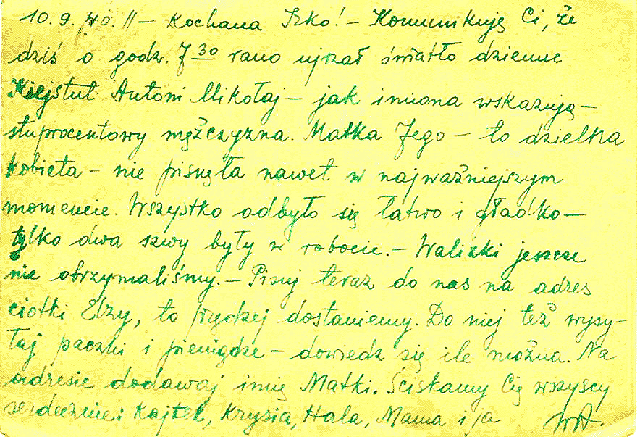 10.9.40. II – Kochana Izko! – Komunikuję Ci, że
dziś o godz. 7 30 rano ujrzał światło dzienne
Kiejstut Antoni Mikołaj – jak imiona wskazują –
stuprocentowy mężczyzna. Matka Jego – to dzielna
kobieta – nie pisnęła nawet w najważniejszym
momencie. Wszystko odbyło się łatwo i gładko –
tylko dwa szwy były w robocie. – Walizki jeszcze
nie otrzymaliśmy. – Pisuj teraz do nas na adres
ciotki Elzy, to prędzej dostaniemy. Do niej też wysy-
łaj paczki i pieniądze – dowiedz się ile można. Na
adresie dodawaj imię Matki. Ściskamy Cię wszyscy
serdecznie: Kajtek, Krysia, Hala, Mama i ja